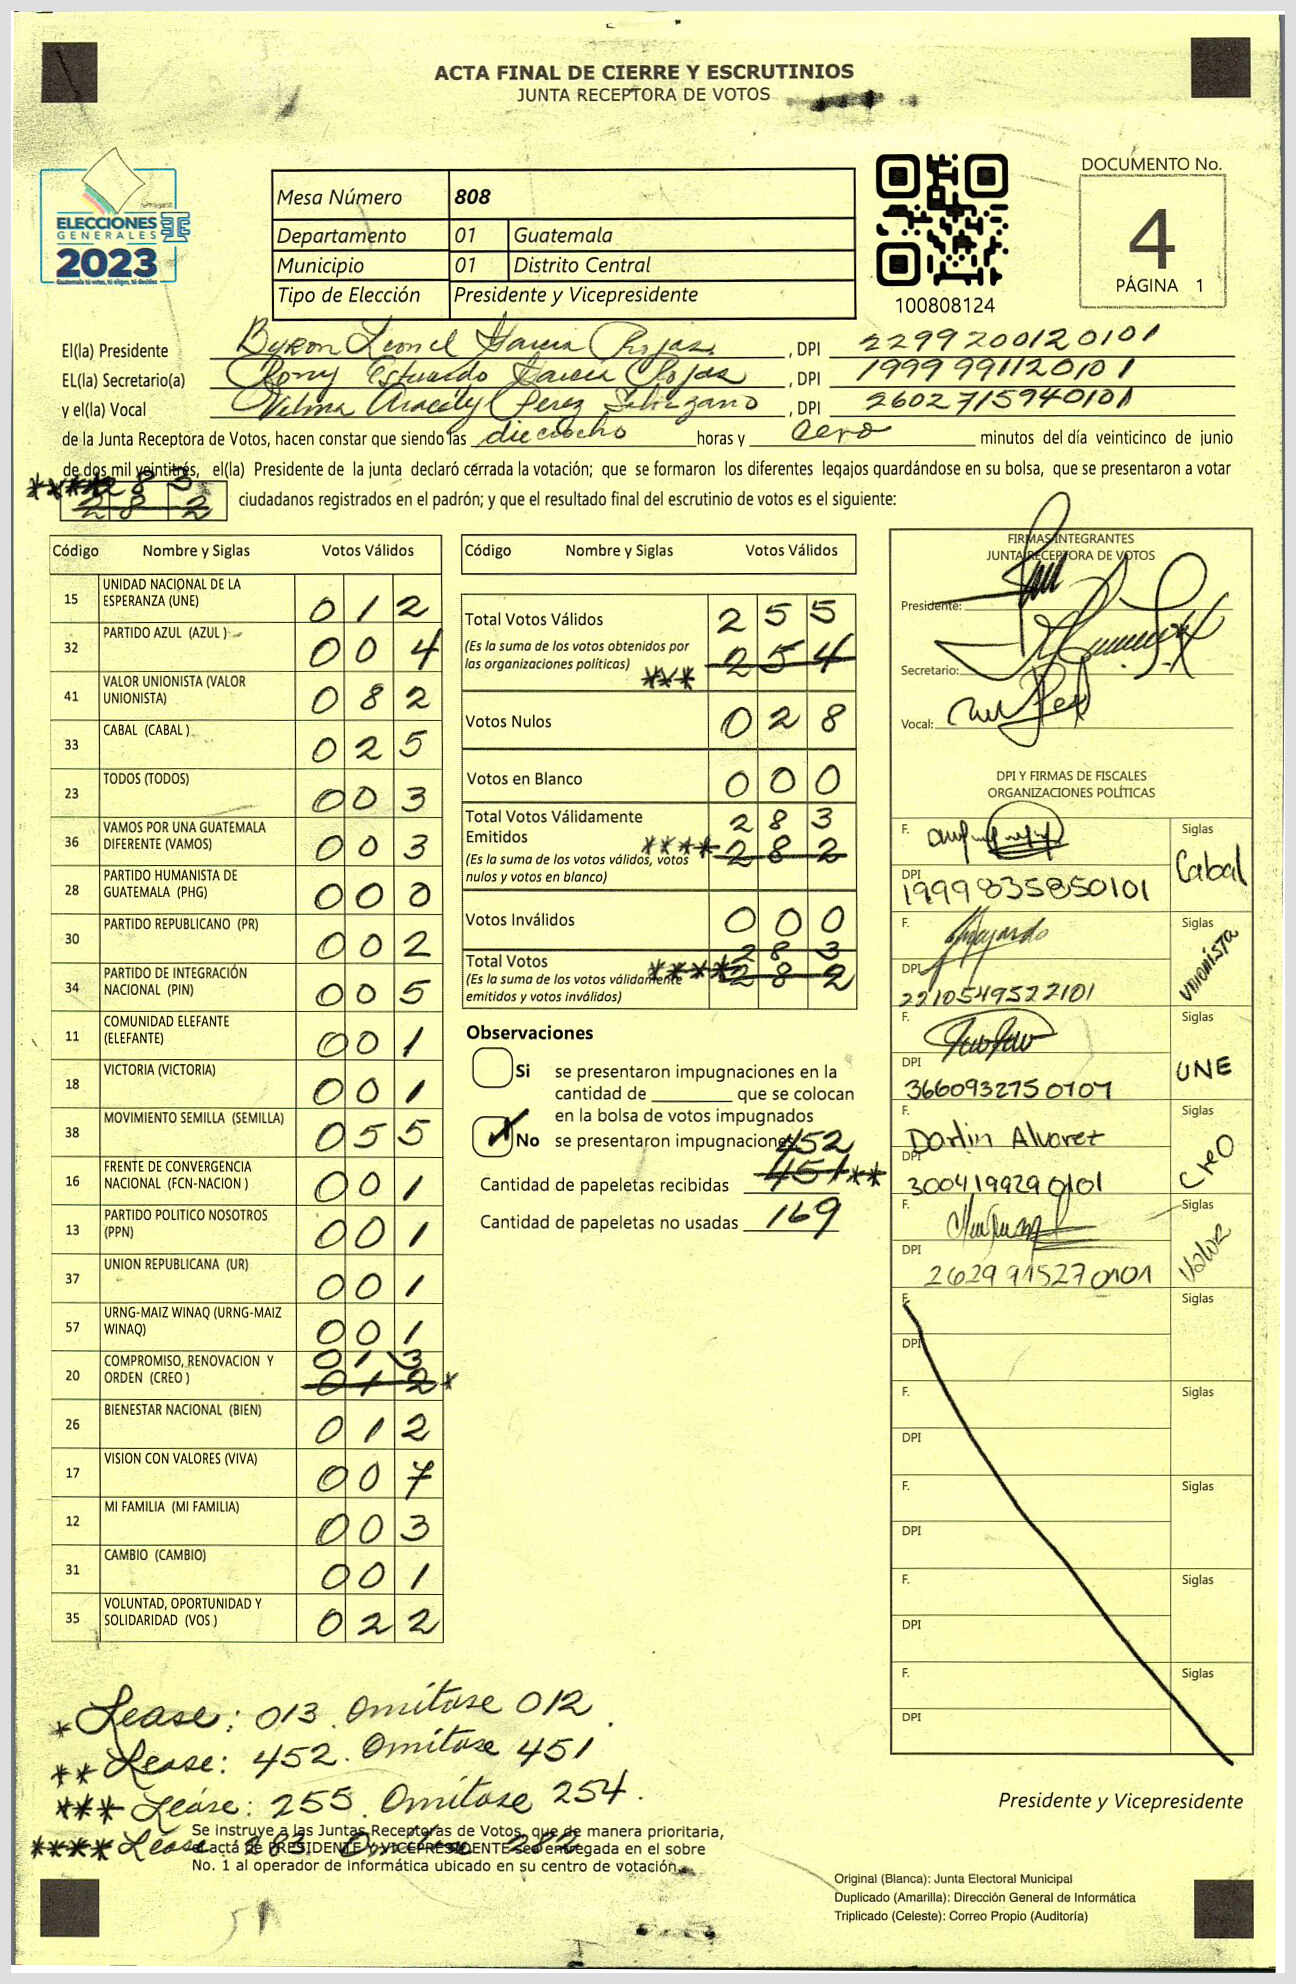 ACTA FINAL DE CIERRE Y ESCRUTINIOS
JUNTA RECEPTORA DE VOTOS
ELECCIONES
GENERALES
2023
Guatemala tú votas, tú eliges, tú decides
Mesa Número 808
Departamento 01 Guatemala
Municipio 01 Distrito Central
Tipo de Elección Presidente y Vicepresidente
100808124
DOCUMENTO No.
4
PÁGINA 1
El(la) Presidente Byron Leonel Garcia Rojas, DPI 2299200120101
EL(la) Secretario(a) Rony Estuardo Garcia Rojas, DPI 1999991120101
y el(la) Vocal Velma Aracely Perez, DPI 2602715940101
de la Junta Receptora de Votos, hacen constar que siendo las dieciocho horas y cero minutos del día veinticinco de junio
de dos mil veintitrés, el(la) Presidente de la junta declaró cerrada la votación; que se formaron los diferentes legajos guardándose en su bolsa, que se presentaron a votar
**** 283
282 ciudadanos registrados en el padrón; y que el resultado final del escrutinio de votos es el siguiente:
Código Nombre y Siglas Votos Válidos
15 UNIDAD NACIONAL DE LA ESPERANZA (UNE) 012
32 PARTIDO AZUL (AZUL ) 004
41 VALOR UNIONISTA (VALOR UNIONISTA) 082
33 CABAL (CABAL ) 025
23 TODOS (TODOS) 003
36 VAMOS POR UNA GUATEMALA DIFERENTE (VAMOS) 003
28 PARTIDO HUMANISTA DE GUATEMALA (PHG) 000
30 PARTIDO REPUBLICANO (PR) 002
34 PARTIDO DE INTEGRACIÓN NACIONAL (PIN) 005
11 COMUNIDAD ELEFANTE (ELEFANTE) 001
18 VICTORIA (VICTORIA) 001
38 MOVIMIENTO SEMILLA (SEMILLA) 055
16 FRENTE DE CONVERGENCIA NACIONAL (FCN-NACION ) 001
13 PARTIDO POLITICO NOSOTROS (PPN) 001
37 UNION REPUBLICANA (UR) 001
57 URNG-MAIZ WINAQ (URNG-MAIZ WINAQ) 001
20 COMPROMISO, RENOVACION Y ORDEN (CREO ) 013
012 *
26 BIENESTAR NACIONAL (BIEN) 012
17 VISION CON VALORES (VIVA) 007
12 MI FAMILIA (MI FAMILIA) 003
31 CAMBIO (CAMBIO) 001
35 VOLUNTAD, OPORTUNIDAD Y SOLIDARIDAD (VOS ) 022
Código Nombre y Siglas Votos Válidos
Total Votos Válidos 255
(Es la suma de los votos obtenidos por las organizaciones políticas) *** 254
Votos Nulos 028
Votos en Blanco 000
Total Votos Válidamente Emitidos 283
(Es la suma de los votos válidos, votos nulos y votos en blanco) **** 282
Votos Inválidos 000
Total Votos 283
(Es la suma de los votos válidamente emitidos y votos inválidos) **** 282
Observaciones
Si se presentaron impugnaciones en la
cantidad de ________ que se colocan
en la bolsa de votos impugnados
No se presentaron impugnaciones
452
Cantidad de papeletas recibidas 451 **
Cantidad de papeletas no usadas 169
FIRMAS INTEGRANTES
JUNTA RECEPTORA DE VOTOS
Presidente:
Secretario:
Vocal:
DPI Y FIRMAS DE FISCALES
ORGANIZACIONES POLÍTICAS
F. Siglas Cabal
DPI 1999835850101
F. Siglas Unionista
DPI 2210549522101
F. Siglas UNE
DPI 3660932750101
F. Darlin Alvarez Siglas Creo
DPI 3004199290101
F. Siglas Valor
DPI 2629915270101
F. Siglas
DPI
F. Siglas
DPI
F. Siglas
DPI
F. Siglas
DPI
F. Siglas
DPI
* Lease: 013. Omitase 012.
** Lease: 452. Omitase 451
*** Lease: 255. Omitase 254.
**** Lease 283 Omitase 282
Se instruye a las Juntas Receptoras de Votos, que de manera prioritaria,
el acta de PRESIDENTE Y VICEPRESIDENTE sea entregada en el sobre
No. 1 al operador de informática ubicado en su centro de votación.
Presidente y Vicepresidente
Original (Blanca): Junta Electoral Municipal
Duplicado (Amarilla): Dirección General de Informática
Triplicado (Celeste): Correo Propio (Auditoría)